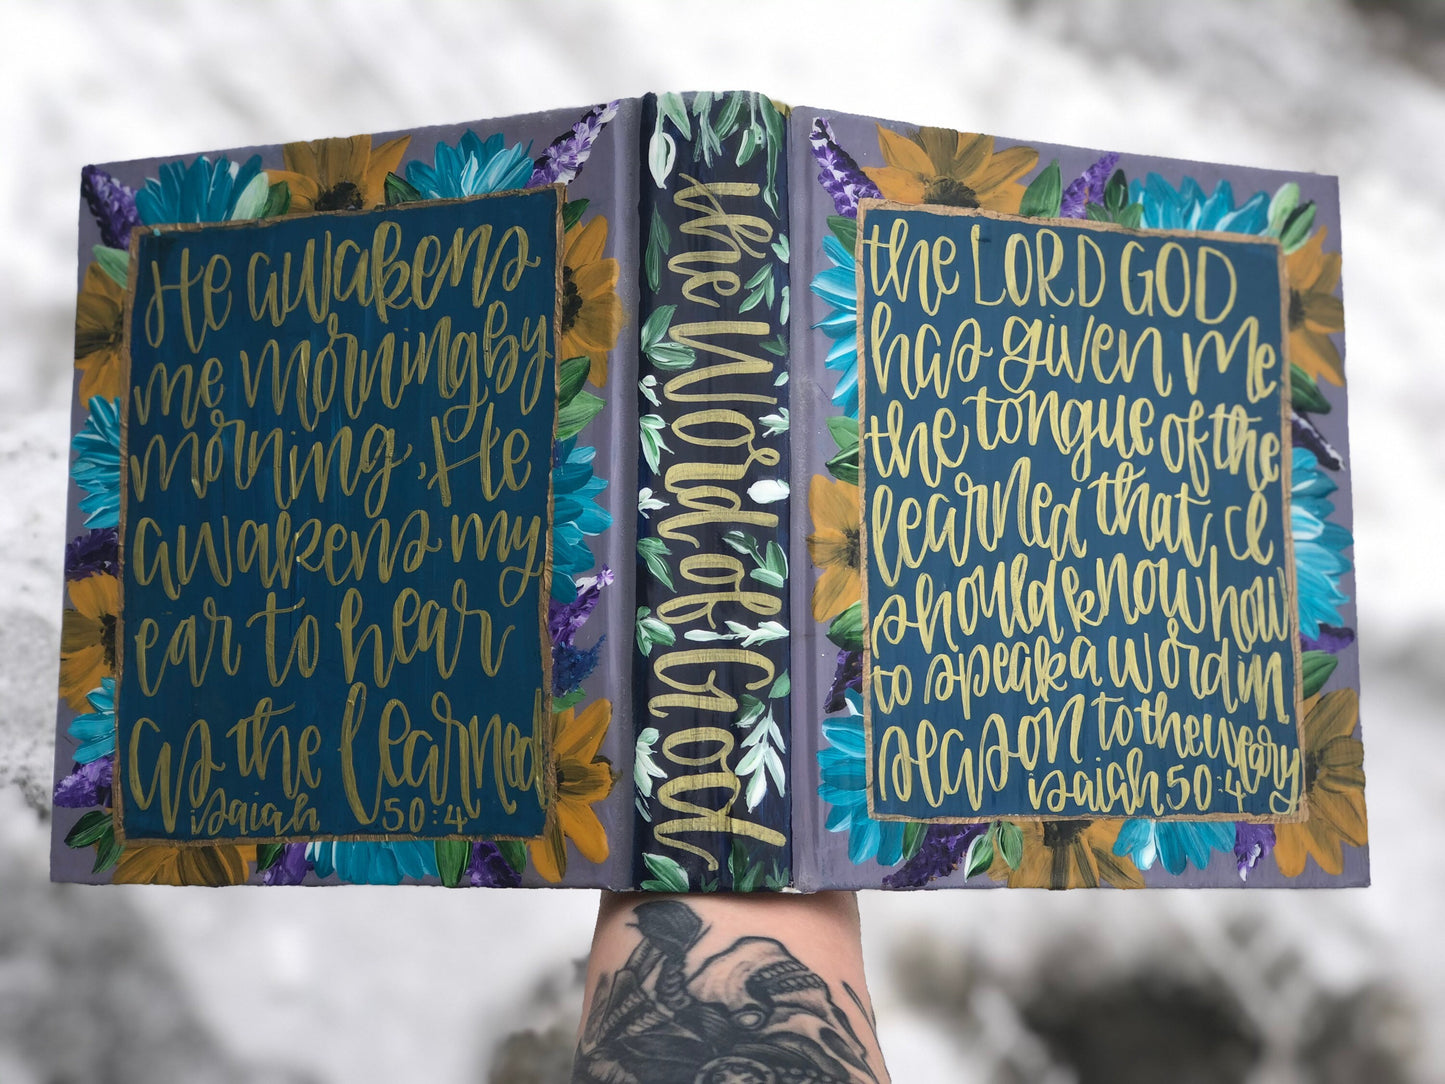 He awakens
me morning by
morning, He
awakens my
ear to hear
as the learned
isaiah 50:4
the Word of God
the LORD GOD
has given me
the tongue of the
learned that I
should know how
to speak a word in
season to the weary
isaiah 50:4